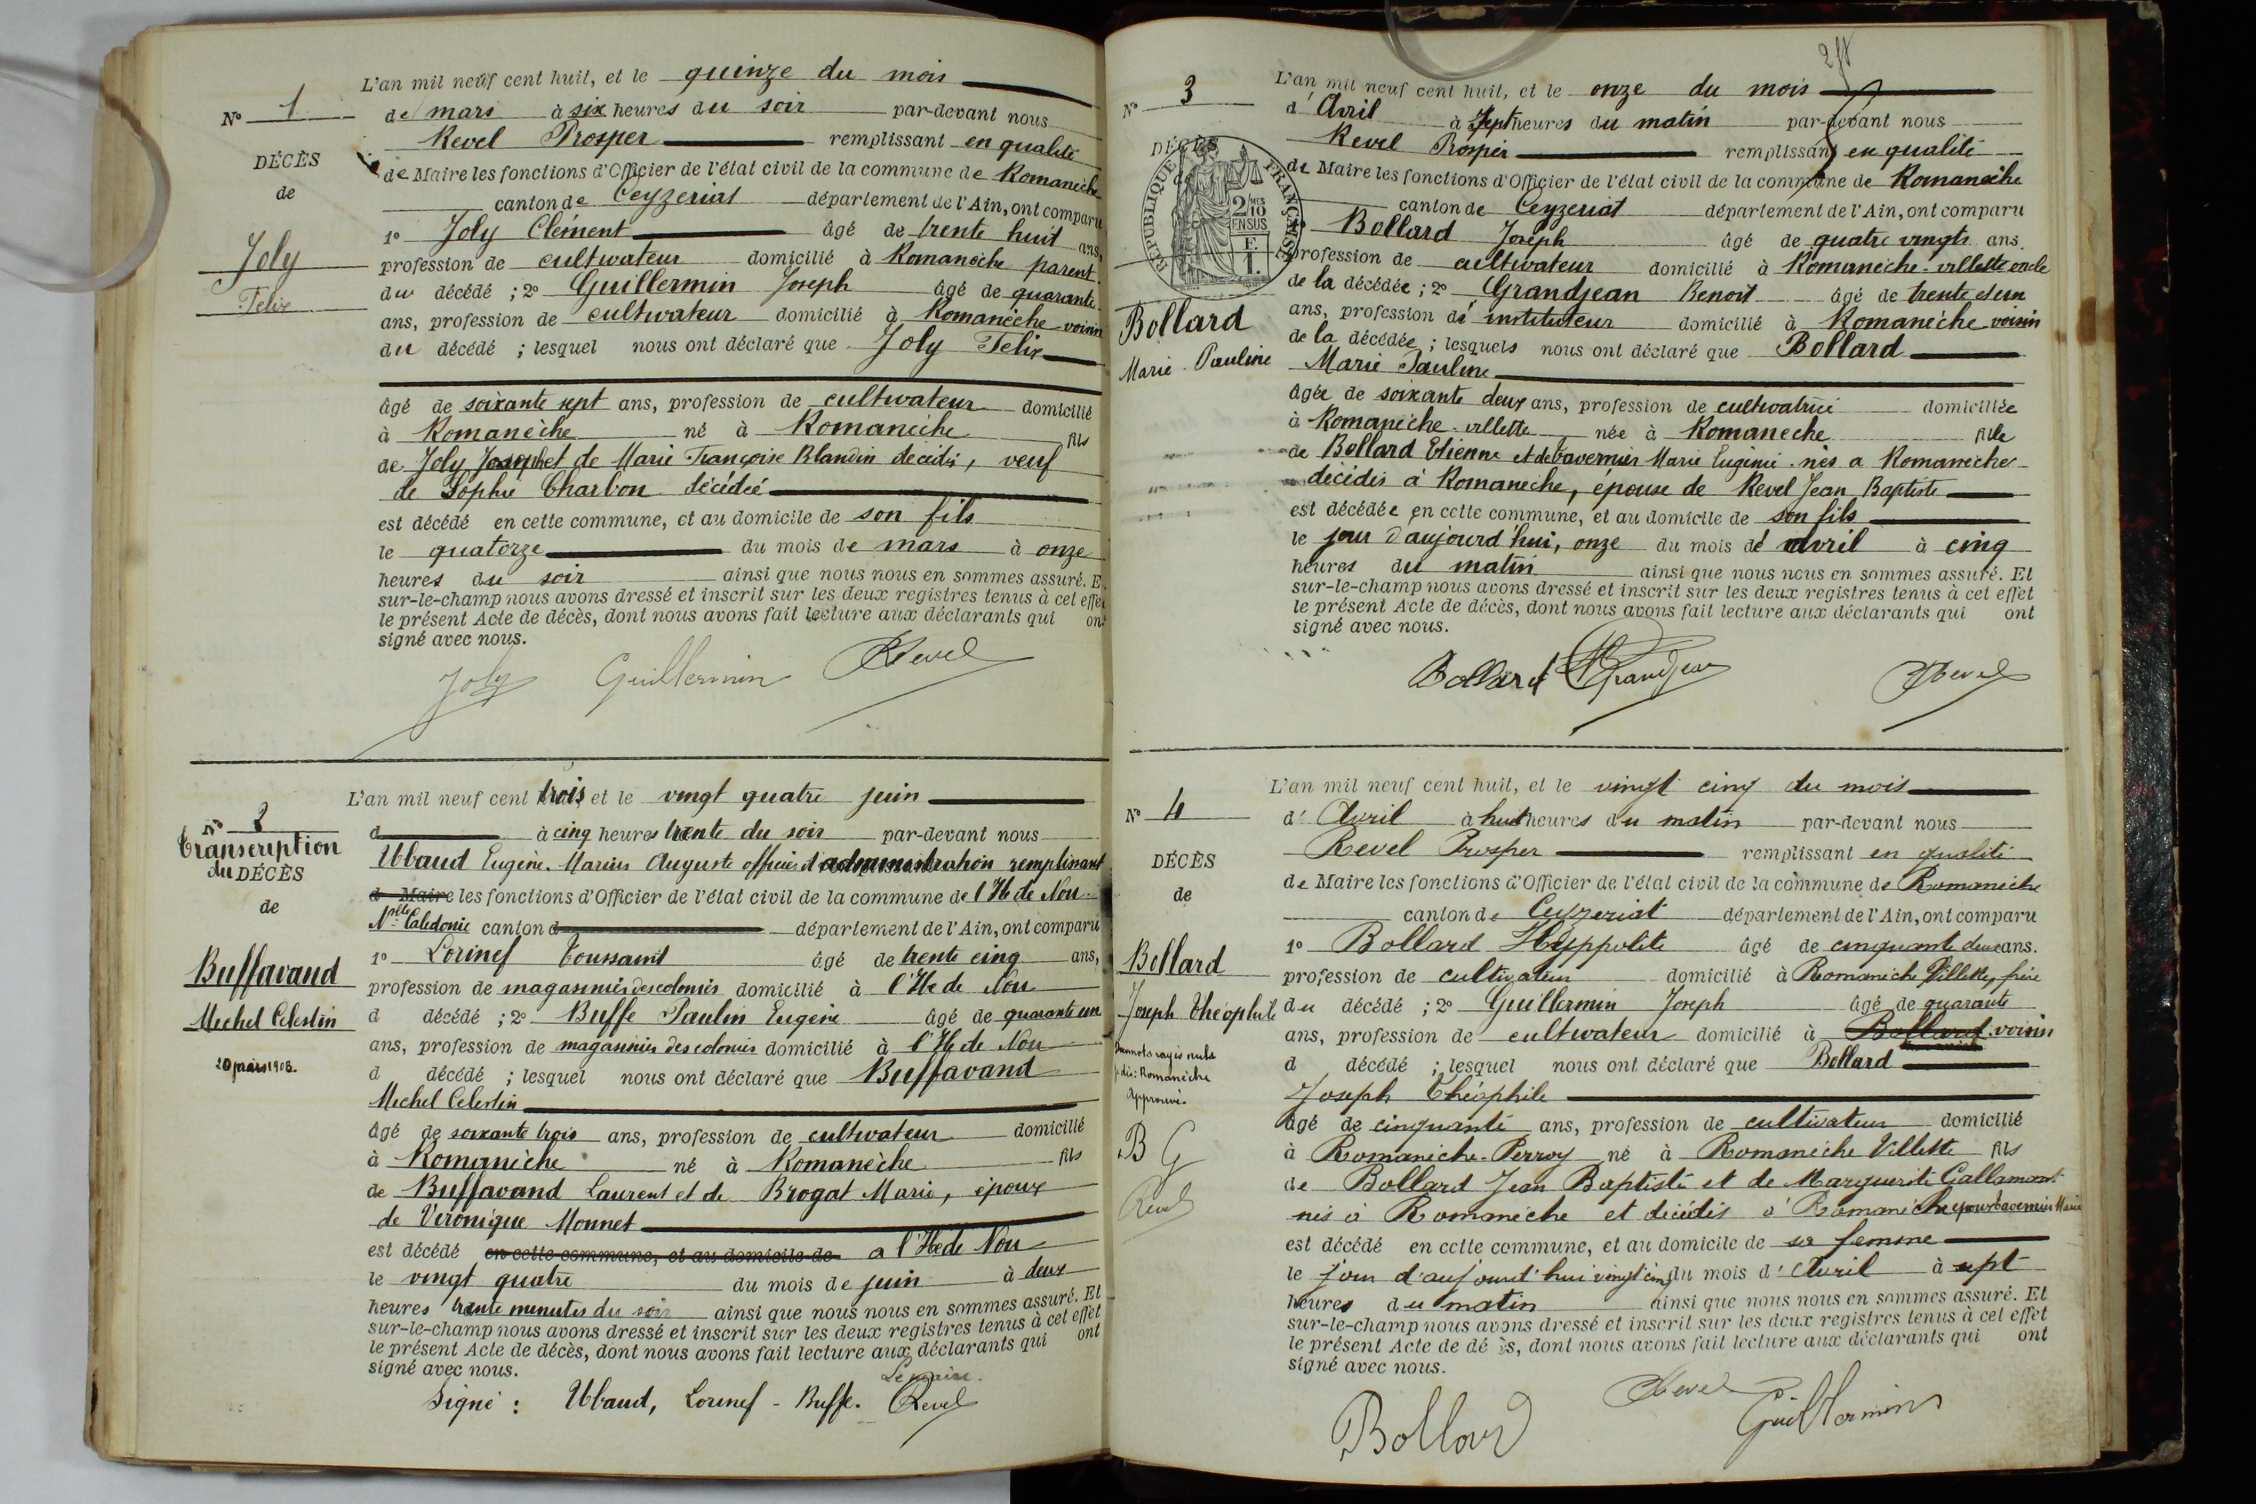 L'an mil neuf cent huit, et le quinze du mois
N° 1
de mars à six heures du soir par-devant nous
Revel Prosper remplissant en qualité
DÉCÈS
de Maire les fonctions d'Officier de l'état civil de la commune de Romanèche
de
canton de Ceyzeriat département de l'Ain, ont comparu
1° Joly Clément âgé de trente huit ans,
Joly
profession de cultivateur domicilié à Romanèche parent
Felix
du décédé ; 2° Guillermin Joseph âgé de quarante
ans, profession de cultivateur domicilié à Romanèche voisin
du décédé ; lesquel nous ont déclaré que Joly Felix
âgé de soixante sept ans, profession de cultivateur domicilié
à Romanèche né à Romanèche fils
de Joly Joseph et de Marie Françoise Blandin décédés, veuf
de Sophie Charbon décédée
est décédé en cette commune, et au domicile de son fils
le quatorze du mois de mars à onze
heures du soir ainsi que nous nous en sommes assuré. Et
sur-le-champ nous avons dressé et inscrit sur les deux registres tenus à cet effet
le présent Acte de décès, dont nous avons fait lecture aux déclarants qui ont
signé avec nous.
Joly Guillermin Revel
L'an mil neuf cent trois et le vingt quatre juin
N° 2
Transcription
du DÉCÈS
de
Buffavand
Michel Celestin
20 mars 1908.
d à cinq heures trente du soir par-devant nous
Ubaud Eugène Marius Auguste officier d'administration remplissant
d Maire les fonctions d'Officier de l'état civil de la commune de l'Ile de Nou
Nelle Caledonie canton d département de l'Ain, ont comparu
1° Lorinef Toussaint âgé de trente cinq ans,
profession de magasinier des colonies domicilié à l'Ile de Nou
d décédé ; 2° Buffe Paulin Eugène âgé de quarante un
ans, profession de magasinier des colonies domicilié à l'Ile de Nou
d décédé ; lesquel nous ont déclaré que Buffavand
Michel Celestin
âgé de soixante trois ans, profession de cultivateur domicilié
à Romanèche né à Romanèche fils
de Buffavand Laurent et de Brogat Marie, époux
de Véronique Monnet
est décédé en cette commune, et au domicile de a l'Ile de Nou
le vingt quatre du mois de juin à deux
heures trente minutes du soir ainsi que nous nous en sommes assuré. Et
sur-le-champ nous avons dressé et inscrit sur les deux registres tenus à cet effet
le présent Acte de décès, dont nous avons fait lecture aux déclarants qui ont
signé avec nous.
Le maire.
Signé : Ubaud, Lorinef - Buffe. Revel
L'an mil neuf cent huit, et le onze du mois
N° 3
d'Avril à sept heures du matin par-devant nous
Revel Prosper remplissant en qualité
DÉCÈS
RÉPUBLIQUE FRANÇAISE
2 MES 10 EN SUS
E. I.
de Maire les fonctions d'Officier de l'état civil de la commune de Romanèche
canton de Ceyzeriat département de l'Ain, ont comparu
Bollard Joseph âgé de quatre vingts ans.
profession de cultivateur domicilié à Romanèche-villette oncle
de la décédée ; 2° Grandjean Benoit âgé de trente et un
Bollard
Marie Pauline
ans, profession d'instituteur domicilié à Romanèche voisin
de la décédée ; lesquels nous ont déclaré que Bollard
Marie Pauline
âgée de soixante deux ans, profession de cultivatrice domiciliée
à Romanèche-villette née à Romaneche fille
de Bollard Etienne et de Tavernier Marie Eugénie nés a Romanèche
décédés à Romaneche, épouse de Revel Jean Baptiste
est décédée en cette commune, et au domicile de son fils
le jour d'aujourd'hui, onze du mois d'avril à cinq
heures du matin ainsi que nous nous en sommes assuré. Et
sur-le-champ nous avons dressé et inscrit sur les deux registres tenus à cet effet
le présent Acte de décès, dont nous avons fait lecture aux déclarants qui ont
signé avec nous.
Bollard Grandjean Revel
L'an mil neuf cent huit, et le vingt cinq du mois
N° 4
d'Avril à huit heures du matin par-devant nous
Revel Prosper remplissant en qualité
DÉCÈS
de Maire les fonctions d'Officier de l'état civil de la commune de Romanèche
de
canton de Ceyzeriat département de l'Ain, ont comparu
1° Bollard Hyppolite âgé de cinquante deux ans.
Bollard
profession de cultivateur domicilié à Romanèche Villette, frère
Joseph Théophile
du décédé ; 2° Guillermin Joseph âgé de quarante
ans, profession de cultivateur domicilié à Bollard voisin
mots rayés nuls
dis: Romanèche
Approuvé.
B G
Revel
d décédé ; lesquel nous ont déclaré que Bollard
Joseph Théophile
âgé de cinquante ans, profession de cultivateur domicilié
à Romanèche-Perroy né à Romanèche Villette fils
de Bollard Jean Baptiste et de Marguerite Gallamont
nés à Romanèche et décédés à Romanèche époux Tavernier Marie
est décédé en cette commune, et au domicile de sa femme
le jour d'aujourd'hui vingt cinq du mois d'Avril à sept
heures du matin ainsi que nous nous en sommes assuré. Et
sur-le-champ nous avons dressé et inscrit sur les deux registres tenus à cet effet
le présent Acte de décès, dont nous avons fait lecture aux déclarants qui ont
signé avec nous.
Revel
Bollard Guillermin